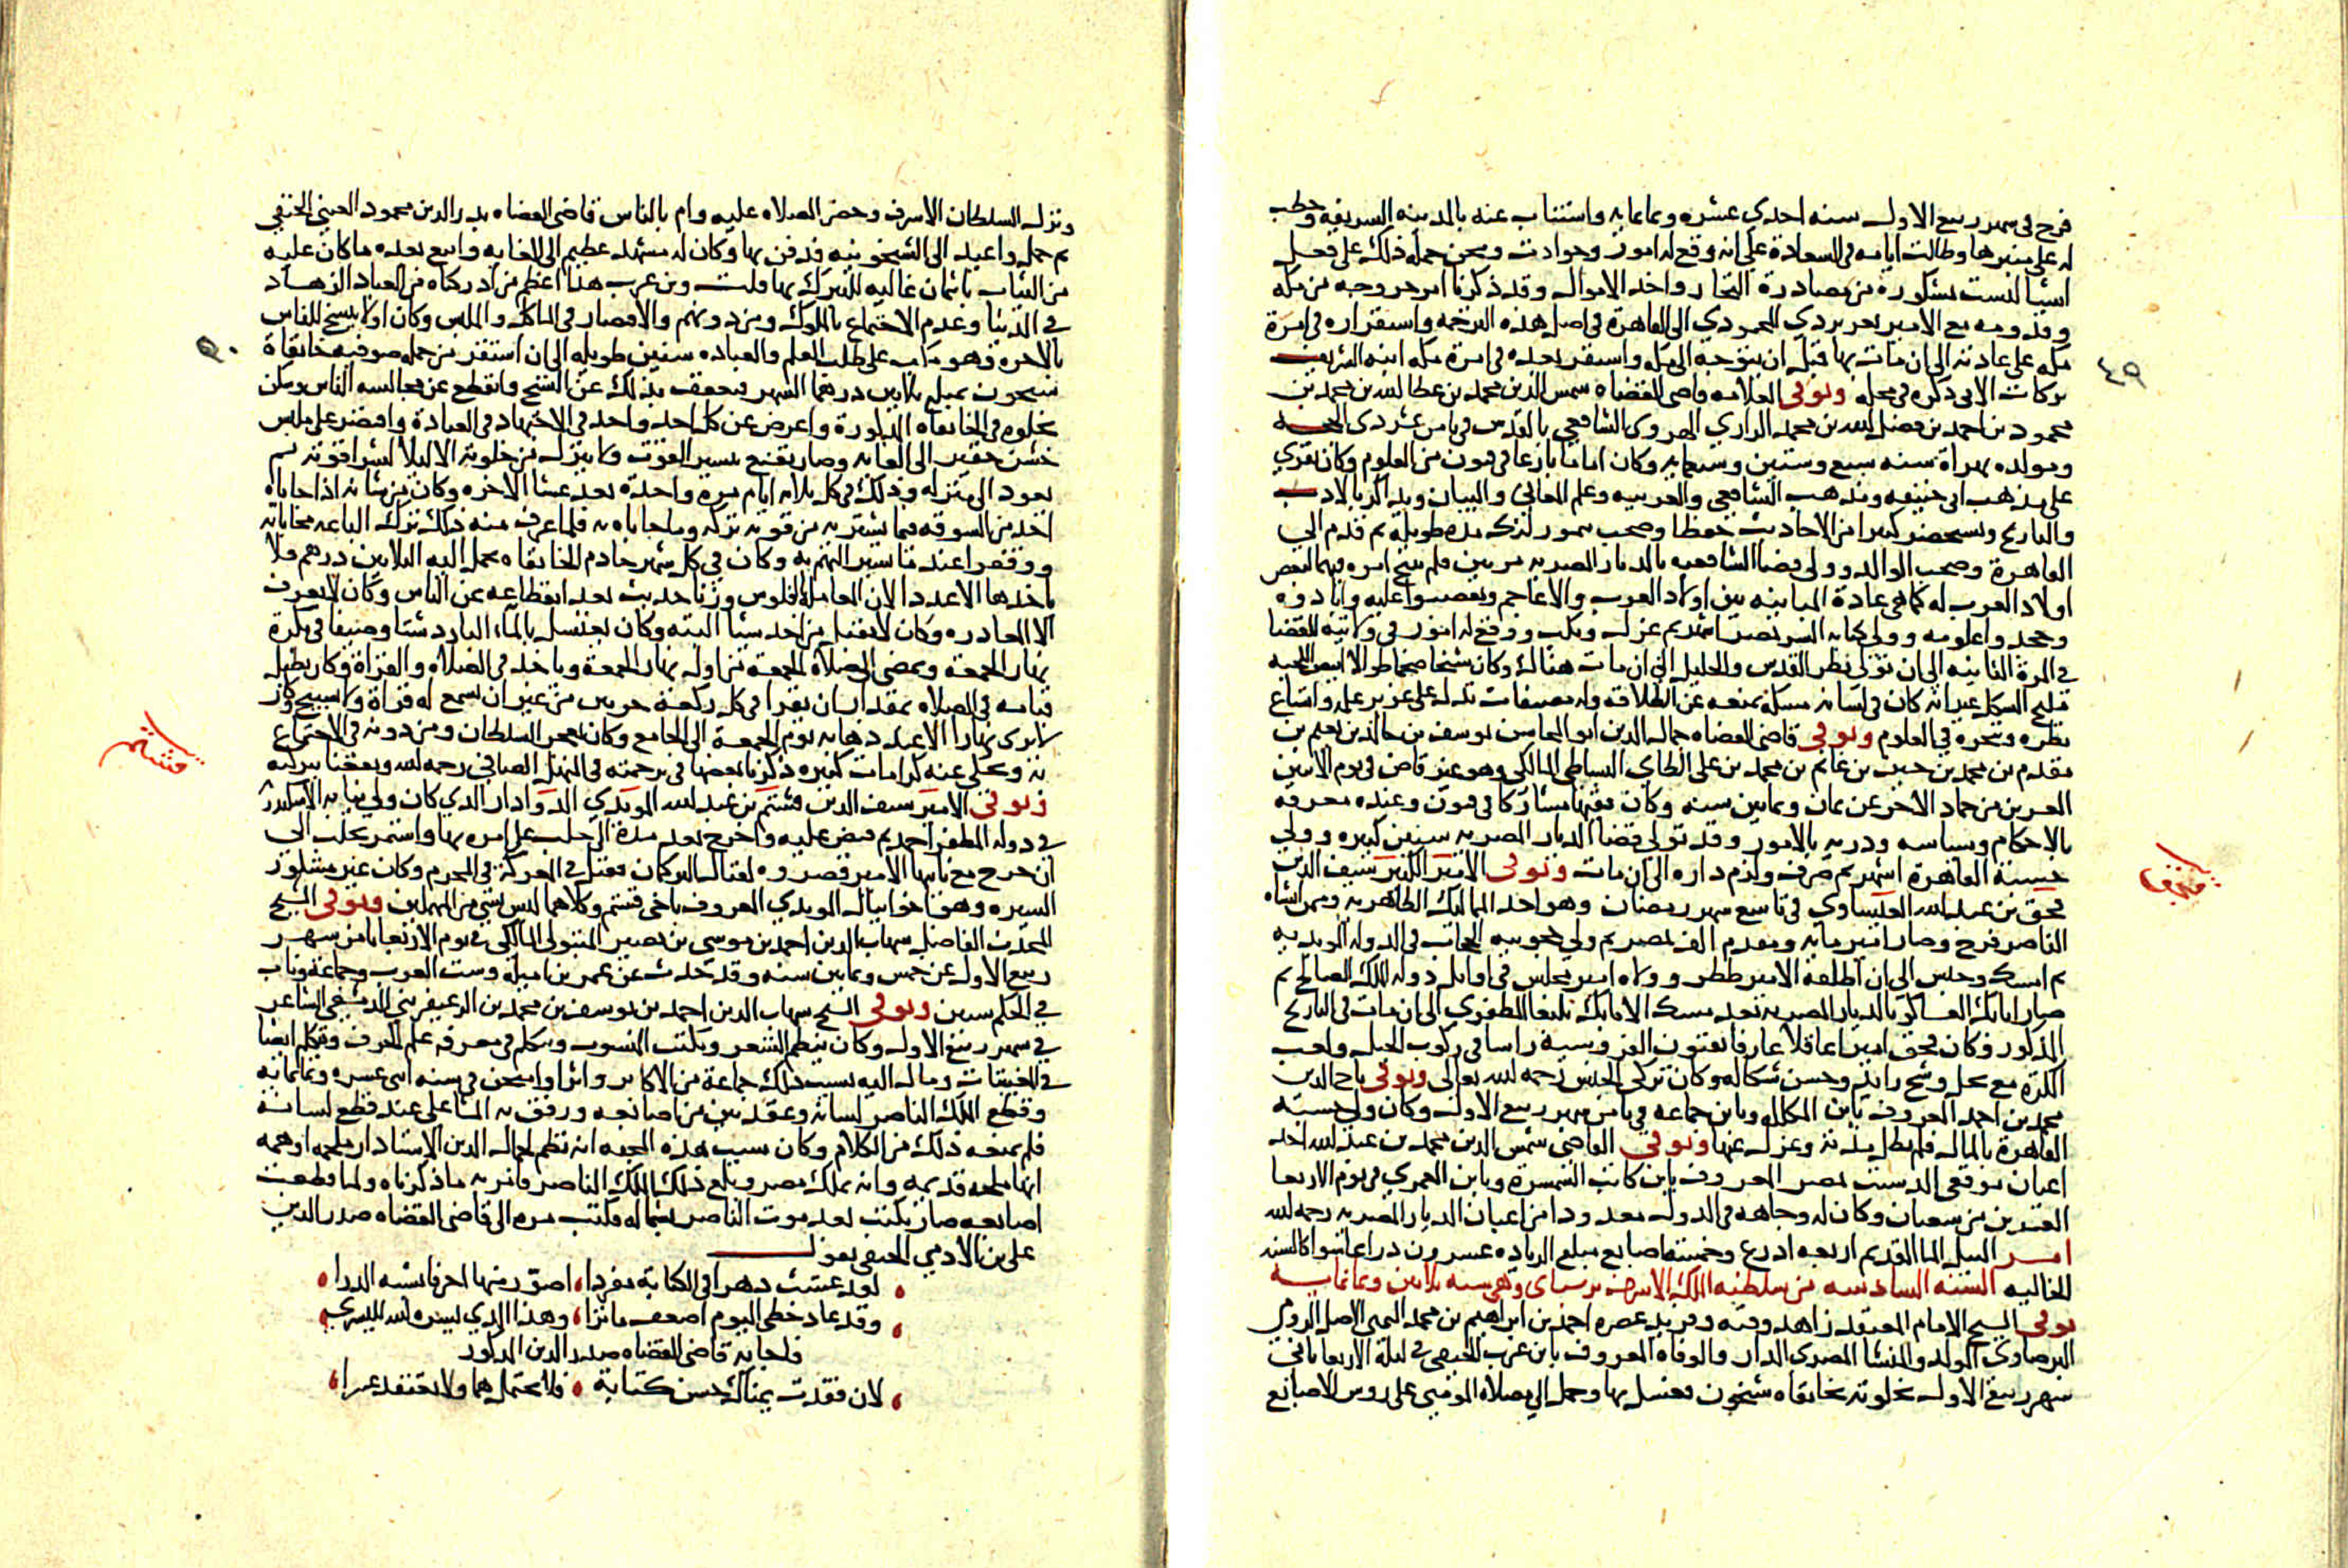 فرج في شهر ربيع الاول سنه احدى عشره وثمانمايه واستناب عنه بالمدينه الشريفه وخطب
له على منبرها وطالت ايامه في السعادة على انه وقع له امور وحوادث ومحن حمله ذلك على فعل
اشيا ليست مشكورة من مصادرة التجار واخذ الاموال وقد ذكرنا امر خروجه من مكه
وقدومه مع الامير تغري بردي المحمودي الى القاهرة في اصل هذه الترجمه واستقراره في امرة
مكه على عادته الى ان مات بها قبل ان يتوجه الى مكه واستقر بعده في امرة مكه ابنه الشريف
٤٩
بركات الاتي ذكره في محله وتوفي العلامه قاضي القضاه شمس الدين محمد بن عطا الله بن محمد بن
محمود بن احمد بن فضل الله بن محمد الرازي الهروي الشافعي بالقدس في ثامن عشر ذي الحجه
ومولده بهراة سنه سبع وستين وسبعمايه وكان اماما بارعا في فنون من العلوم وكان يقري
على مذهب ابي حنيفه ومذهب الشافعي والعربيه وعلم المعاني والبيان ويذاكر بالادب
والتاريخ ويستحضر كثيرا من الاحاديث حفظا وصحب تيمور لنك مدة طويله ثم قدم الى
القاهرة وصحب الوالد وولي قضا الشافعيه بالديار المصريه مرتين فلم ينتج امره فيهما لبغض
اولاد العرب له كما هي عادة المباينه بين اولاد العرب والاعاجم وتعصبوا عليه وابادوه
وجحدوا علومه وولي كتابه السر بمصر اشهر ثم عزل ونكب ووقع له امور في ولايته للقضا
في المرة الثانيه الى ان تولى نظر القدس والخليل الى ان مات هناك وكان شيخا ضخما طوالا ابيض اللحيه
مليح الشكل غير انه كان في لسانه مسكه تمنعه عن الطلاقه وله مصنفات تدل على غزير علمه واتساع
نظره وتبحره في العلوم وتوفي قاضي القضاه جمال الدين ابو المحاسن يوسف بن خالد بن نعيم بن
مقدم بن محمد بن حسن بن غانم بن محمد بن على الطاي البساطي المالكي وهو غير قاض في يوم الاثنين
العشرين من جماد الاخر عن ثمان وثمانين سنه وكان فقيها مشاركا في فنون وعنده معرفه
بالاحكام وسياسه ودربه بالامور وقد تولى قضا الديار المصريه سنين كثيره وولي
حسبه القاهرة اشهر ثم صرف ولزم داره الى ان مات وتوفي الامير الكبير سيف الدين
قجق
قجق بن عبد الله العيساوي في تاسع شهر رمضان وهو احد المماليك الظاهريه وممن انشاه
الناصر فرج وصار امير مايه ومقدم الف بمصر ثم ولي حجوبيه الحجاب في الدوله المويديه
ثم امسك وحبس الى ان اطلقه الامير ططر وولاه امير مجلس في اوايل دوله الملك الصالح ثم
صار اتابك العساكر بالديار المصريه بعد مسك الاتابك يلبغا المظفري الى ان مات في التاريخ
المذكور وكان قجق اميرا عاقلا عارفا بفنون الفروسيه راسا في ركوب الخيل ولعب
الكرة مع بخل وشح زايد وحسن شكاله وكان تركي الجنس رحمه الله تعالى وتوفي تاج الدين
محمد بن احمد المعروف بابن المكلله وبابن جماعه في ثامن شهر ربيع الاول وكان ولي حسبه
القاهرة بالمال فلم تطل مدته وعزل عنها وتوفي القاضي شمس الدين محمد بن عبد الله احد
اعيان موقعي الدست بمصر المعروف بابن كاتب السمسرة وبابن العمري في يوم الاربعا
العشرين من شعبان وكان له وجاهه في الدوله معدودا من اعيان الديار المصريه رحمه الله
امر النيل الما القديم اربعه اذرع وخمسه اصابع مبلغ الزياده عشرون ذراعا سوا كالسنه
الخاليه السنه السادسه من سلطنه الملك الاشرف برسباى وهي سنه ثلاثين وثمانمايه
توفي الشيخ الامام المعتقد زاهد وقته وفريد عصره احمد بن ابراهيم بن محمد اليمني الاصل الرومي
البرصاوي المولد والمنشا المصري الدار والوفاه المعروف بابن عرب الحنفي في ليله الاربعا ثاني
شهر ربيع الاول بخلوته بخانقاه شيخون فغسل بها وحمل الى مصلاه المومني على روس الاصابع
ونزل السلطان الاشرف وحضر الصلاه عليه وام بالناس قاضي القضاه بدر الدين محمود العيني الحنفي
ثم حمل واعيد الى الشيخونيه فدفن بها وكان له مشهد عظيم الى الغايه وابيع بعده ما كان عليه
من الثياب باثمان غاليه للتبرك بها قلت وبن عرب هذا اعظم من ادركناه من العباد الزهاد
في الدنيا وعدم الاجتماع بالملوك ومن دونهم والاقتصار في الماكل والملبس وكان اولا ينسخ للناس
بالاجره وهو مكب على طلب العلم والعباده سنين طويله الى ان استقر من جمله صوفيه خانقاة
٥٠
شيخون بمبلغ ثلاثين درهما الشهر فتعفف بذلك عن النسخ وانقطع عن مجالسه الناس وسكن
بخلوه في الخانقاه المذكورة واعرض عن كل احد واخذ في الاجتهاد في العبادة واقتصر على ملبس
خشن حقير الى الغايه وصار يقنع بيسير القوت ولا ينزل من خلوته الا ليلا لشرا قوته ثم
يعود الى منزله وذلك في كل ثلاثه ايام مرة واحدة بعد عشا الاخره وكان من شانه اذا حاباه
احد من السوقه فيما يشتريه من قوته تركه وما حاباه به فلما عرف منه ذلك ترك الباعه محاباته
ووقفوا عند ما يشير اليهم به وكان في كل شهر خادم الخانقاه يحمل اليه الثلاثين درهم فلا
ياخذها الا عددا لان المعاملة بالفلوس وزنا حديث بعد انقطاعه عن الناس وكان لا يعرف
الا المعادده وكان لا يقبل من احد شيا البته وكان يغتسل بالماء البارد شتا وصيفا في بكرة
نهار الجمعه ويمضي الى صلاة الجمعة من اول نهار الجمعة وياخذ في الصلاه والقراة وكان يطيل
قيامه في الصلاه بمقدار ان يقرا في كل ركعة حزبين من غير ان يسمع له قراة ولا تسبيح وكان
لا يرى نهارا الا عند ذهابه يوم الجمعة الى الجامع وكان يعجز السلطان ومن دونه في الاجتماع
به ويحكى عنه كرامات كثيره ذكرنا بعضها في ترجمته في المنهل الصافي رحمه الله ونفعنا ببركته
قشتم
وتوفي الامير سيف الدين قشتم بن عبد الله المويدي الدوادار الذي كان ولي نيابه الاسكندريه
في دوله المظفر احمد ثم قبض عليه واخرج بعد مدة الى حلب على امره بها واستمر بحلب الى
ان خرج مع نايبها الامير قصروه لقتال التركمان فقتل في المعركة في المحرم وكان غير مشكور
السيره وهو اخو اينال المويدي المعروف باخي قشتم وكلاهما ليس بشي من المهملين وتوفي الشيخ
المحدث الفاضل شهاب الدين احمد بن موسى بن نصير المتبولي المالكي في يوم الاربعا ثامن شهر
ربيع الاول عن خمس وثمانين سنه وقد حدث عن عمر بن اميله وست العرب وجماعة وناب
في الحكم سنين وتوفي الشيخ شهاب الدين احمد بن يوسف بن محمد بن الزعيفريني الدمشقي الشاعر
في شهر ربيع الاول وكان ينظم الشعر ويكتب المنسوب ويتكلم في معرفه علم الحرف ويتكلم ايضا
في المغيبات ومال اليه بسبب ذلك جماعة من الاكابر واثرا وامتحن في سنه اثني عشره وثمانمايه
وقطع الملك الناصر لسانه وعقدتين من اصابعه ورفق به المشاعلي عند قطع لسانه
فلم يمنعه ذلك من الكلام وكان سبب هذه المحنه انه نظم لجمال الدين الاستادار ملحمه اوهمه
انها ملحمه قديمه وانه يملك مصر وبلغ ذلك الملك الناصر فامر به ما ذكرناه ولما قطعت
اصابعه صار يكتب بعد موت الناصر بشماله فكتب مره الى قاضي القضاه صدر الدين
على بن الادمي الحنفي يقول
لقد عشت دهرا في الكتابه مفردا اصور منها احرفا تشبه الدرا
وقد عاد خطي اليوم اضعف ما ترا وهذا الذي يسره الله لليسرى
فاجابه قاضي القضاه صدر الدين المذكور
لان فقدت يمناك حسن كتابة فلا تحتمل هما ولا تعتقد عسرا